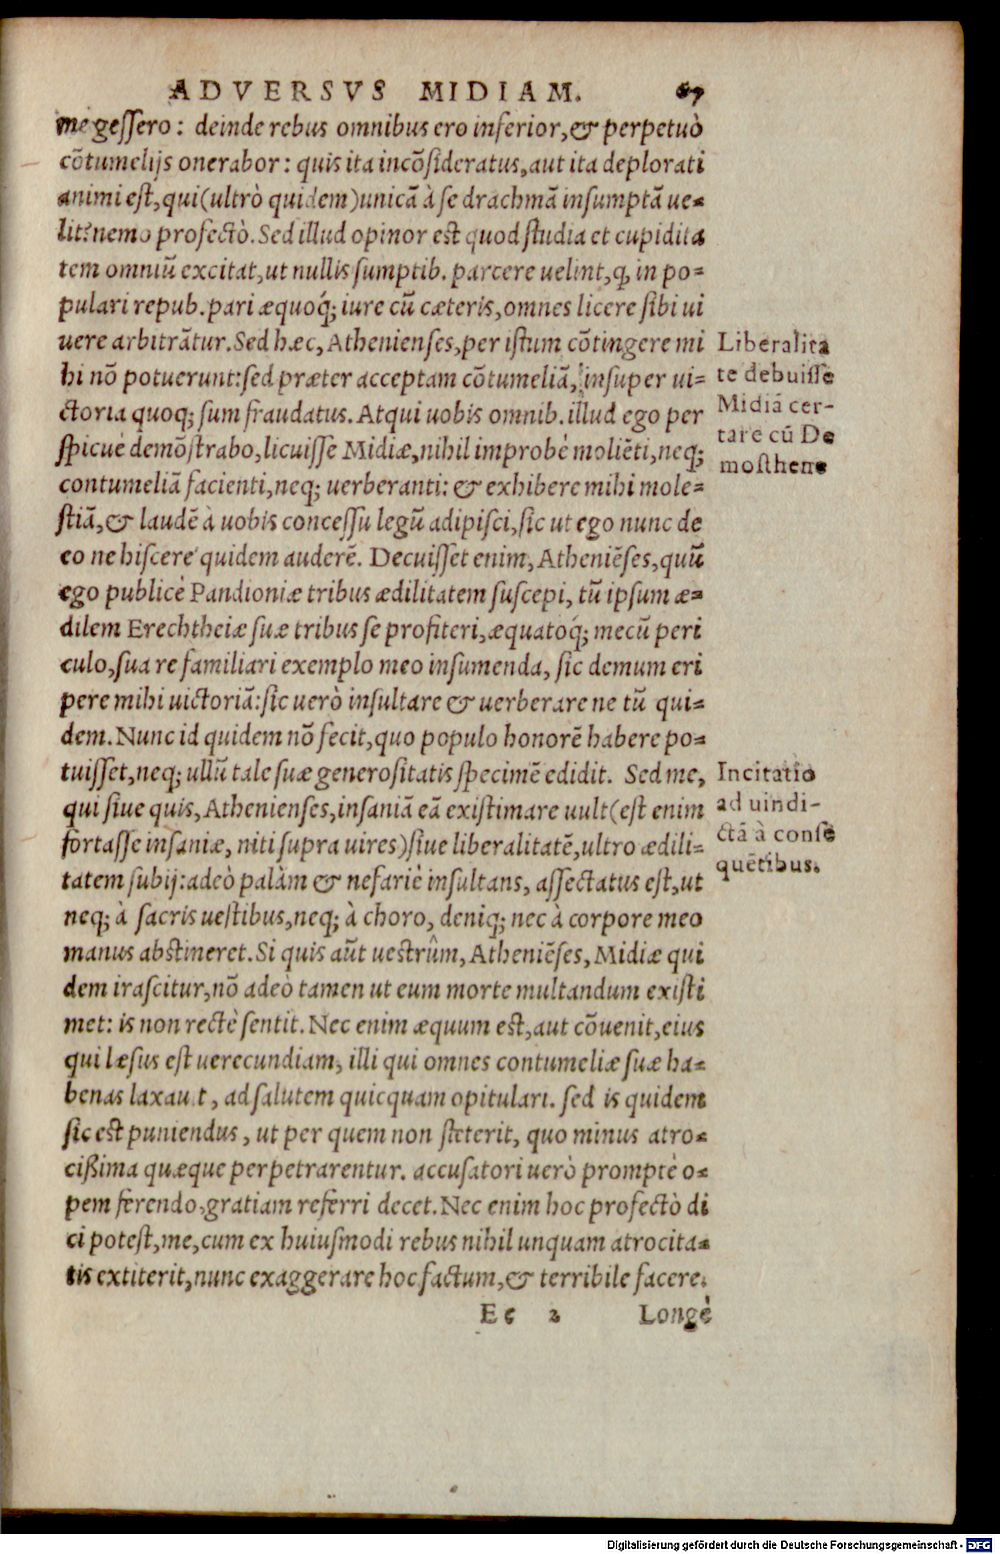 ADVERSVS MIDIAM. 67
me gessero: deinde rebus omnibus ero inferior, & perpetuò
cõtumelijs onerabor: quis ita incõsideratus, aut ita deplorati
animi est, qui (ultrò quidem) unicã à se drachmã insumptã ue-
lit? nemo profectò. Sed illud opinor est quod studia et cupidita
tem omniũ excitat, ut nullis sumptib. parcere uelint, ꝙ in po-
pulari repub. pari æquoq́; iure cũ cæteris, omnes licere sibi ui
uere arbitrãtur. Sed hæc, Athenienses, per istum cõtingere mi
hi nõ potuerunt: sed præter acceptam cõtumeliã, insuper ui-
ctoria quoq; sum fraudatus. Atqui uobis omnib. illud ego per
spicuè demõstrabo, licuisse Midiæ, nihil improbè moliẽti, neq;
contumeliã facienti, neq; uerberanti: & exhibere mihi mole-
stiã, & laudẽ à uobis concessu legũ adipisci, sic ut ego nunc de
eo ne hiscere quidem auderẽ. Decuisset enim, Atheniẽses, quũ
ego publicè Pandioniæ tribus ædilitatem suscepi, tũ ipsum æ-
dilem Erechtheiæ suæ tribus se profiteri, æquatoq́; mecũ peri
culo, sua re familiari exemplo meo insumenda, sic demum eri
pere mihi uictoriã: sic uerò insultare & uerberare ne tũ qui-
dem. Nunc id quidem nõ fecit, quo populo honorẽ habere po-
tuisset, neq; ullũ tale suæ generositatis specimẽ edidit. Sed me,
qui siue quis, Athenienses, insaniã eã existimare uult (est enim
fortasse insaniæ, niti supra uires) siue liberalitatẽ, ultro ædili-
tatem subij: adeò palàm & nefariè insultans, assectatus est, ut
neq; à sacris uestibus, neq; à choro, deniq; nec à corpore meo
manus abstineret. Si quis aũt uestrûm, Atheniẽses, Midiæ qui
dem irascitur, nõ adeò tamen ut eum morte multandum existi
met: is non rectè sentit. Nec enim æquum est, aut cõuenit, eius
qui læsus est uerecundiam, illi qui omnes contumeliæ suæ ha-
benas laxau t, ad salutem quicquam opitulari. sed is quidem
sic est puniendus, ut per quem non steterit, quo minus atro-
cißima quæque perpetrarentur. accusatori uerò promptè o-
pem ferendo, gratiam referri decet. Nec enim hoc profectò di
ci potest, me, cum ex huiusmodi rebus nihil unquam atrocita-
tis extiterit, nunc exaggerare hoc factum, & terribile facere.
Ee 2 Longè
Liberalita
te debuisse
Midiã cer-
tare cũ De
mosthene
Incitatio
ad uindi-
ctã à conse
quẽtibus.
Digitalisierung gefördert durch die Deutsche Forschungsgemeinschaft - DFG